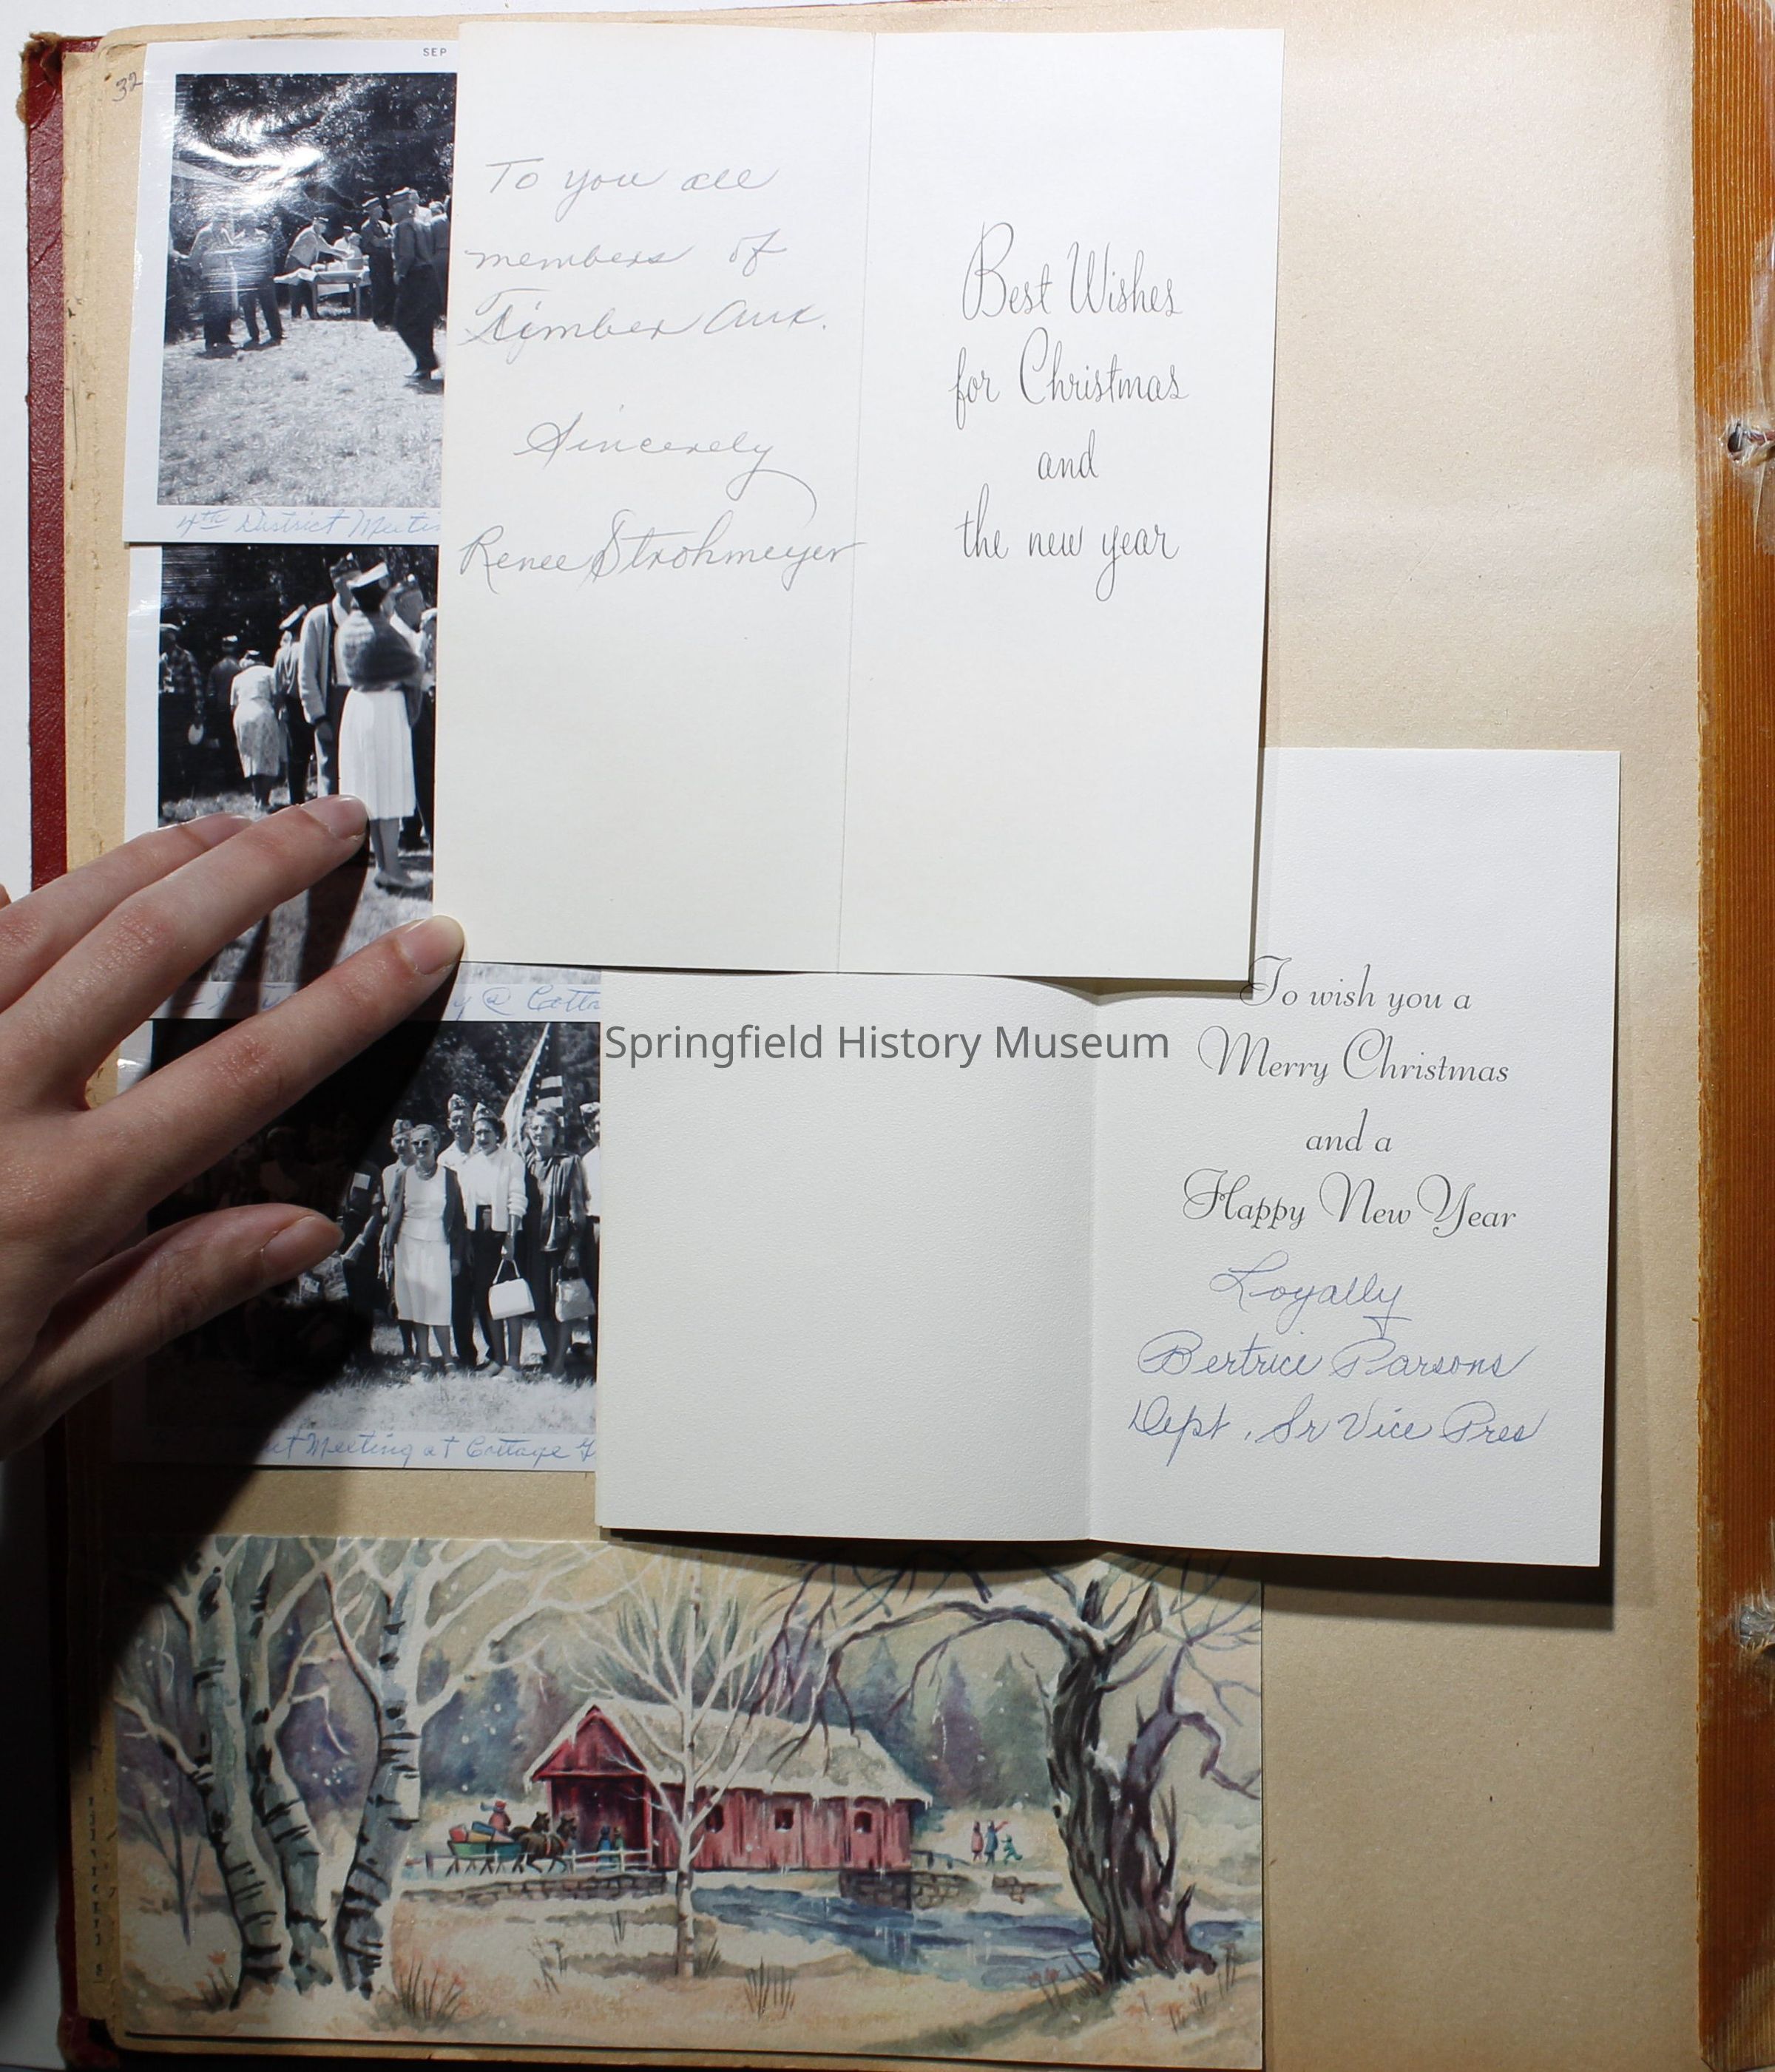 32
SEP
4th District Meetin
To you all
members of
Timber Aux.
Sincerely
Renee Strohmeyer
Best Wishes
for Christmas
and
the new year
y @ Cotta
Springfield History Museum
To wish you a
Merry Christmas
and a
Happy New Year
Loyally
Bertrice Parsons
Dept. Sr Vice Pres
Meeting at Cottage G